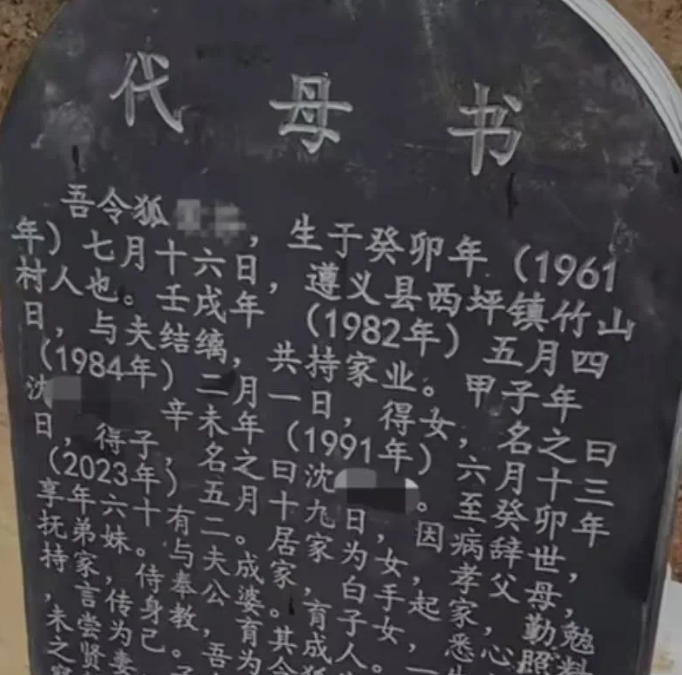 代母书
吾令狐，生于癸卯年（1961
年）七月十六日，遵义县西坪镇竹山
村人也。壬戌年（1982年）五月四
日，与夫结缡，共持家业。甲子年
（1984年）二月一日，得女，名之曰
沈。辛未年（1991年）六月十三
日，得子，名之曰沈。至癸卯年
（2023年）五月十九日，因病辞世，
享年六十有二。居家为女，孝父母，
抚弟妹。与夫成家，白手起家，勤勉
持家，侍奉公婆，育子女，悉心照料
，言传身教，
未尝为己
之贤妻